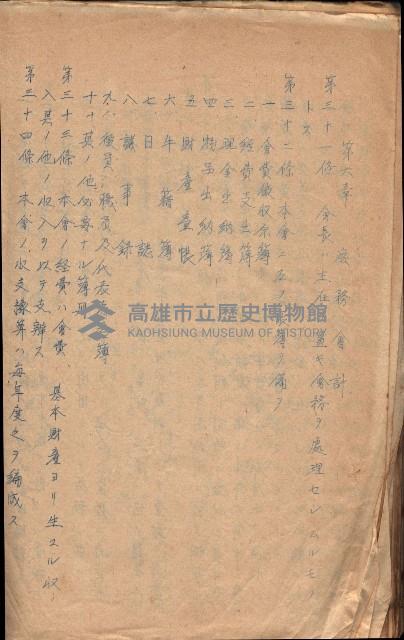 第六章 庶務會計
第三十一條 會長ハ主任ヲ置キ會務ヲ處理セシムルモノ
トス
第三十二條 本會ニ左ノ帳簿ヲ備フ
一、會費徵收原簿
二、經費支出簿
三、現金出納簿
四、物品出納簿
五、財產臺帳
六、年籍簿
七、日誌
八、議事錄
九、役員、職員及代表者名簿
十、其ノ他必要ナル簿冊
第三十三條 本會ノ經費ハ會費、基本財產ヨリ生スル收
入其ノ他ノ收入ヲ以テ支辨ス
第三十四條 本會ノ收支豫算ハ每年度之ヲ編成ス
高雄市立歷史博物館
KAOHSIUNG MUSEUM OF HISTORY